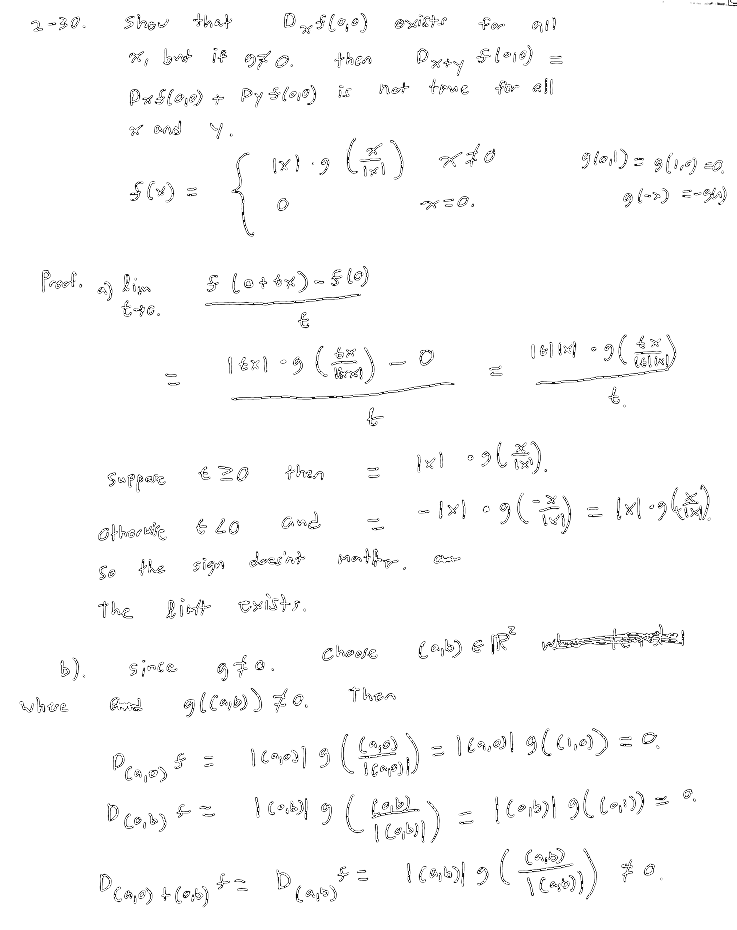 2-30. Show that D_x f(0,0) exists for all
x, but if g≠0. then D_{x+y} f(0,0) =
D_x f(0,0) + D_y f(0,0) is not true for all
x and y.
f(x) = { |x| · g (x/|x|) x≠0 g(0,1) = g(1,0) = 0.
0 x=0. g(-x) = -g(x)
Proof. a) lim t→0. f (0+tx) - f(0) / t
= |tx| · g (tx/|tx|) - 0 / t = |t||x| · g (tx/|t||x|) / t.
suppose t≥0 then = |x| · g (x/|x|).
otherwise t<0 and = -|x| · g (-x/|x|) = |x| · g (x/|x|)
so the sign doesn't matter,
the limit exists.
b). since g≠0. choose (a,b) ∈ ℝ²
where and g((a,b)) ≠ 0. Then
D_{(a,0)} f = |(a,0)| g ((a,0)/|(a,0)|) = |(a,0)| g((1,0)) = 0.
D_{(0,b)} f = |(0,b)| g ((0,b)/|(0,b)|) = |(0,b)| g((0,1)) = 0.
D_{(a,0)+(0,b)} f = D_{(a,b)} f = |(a,b)| g ((a,b)/|(a,b)|) ≠ 0.